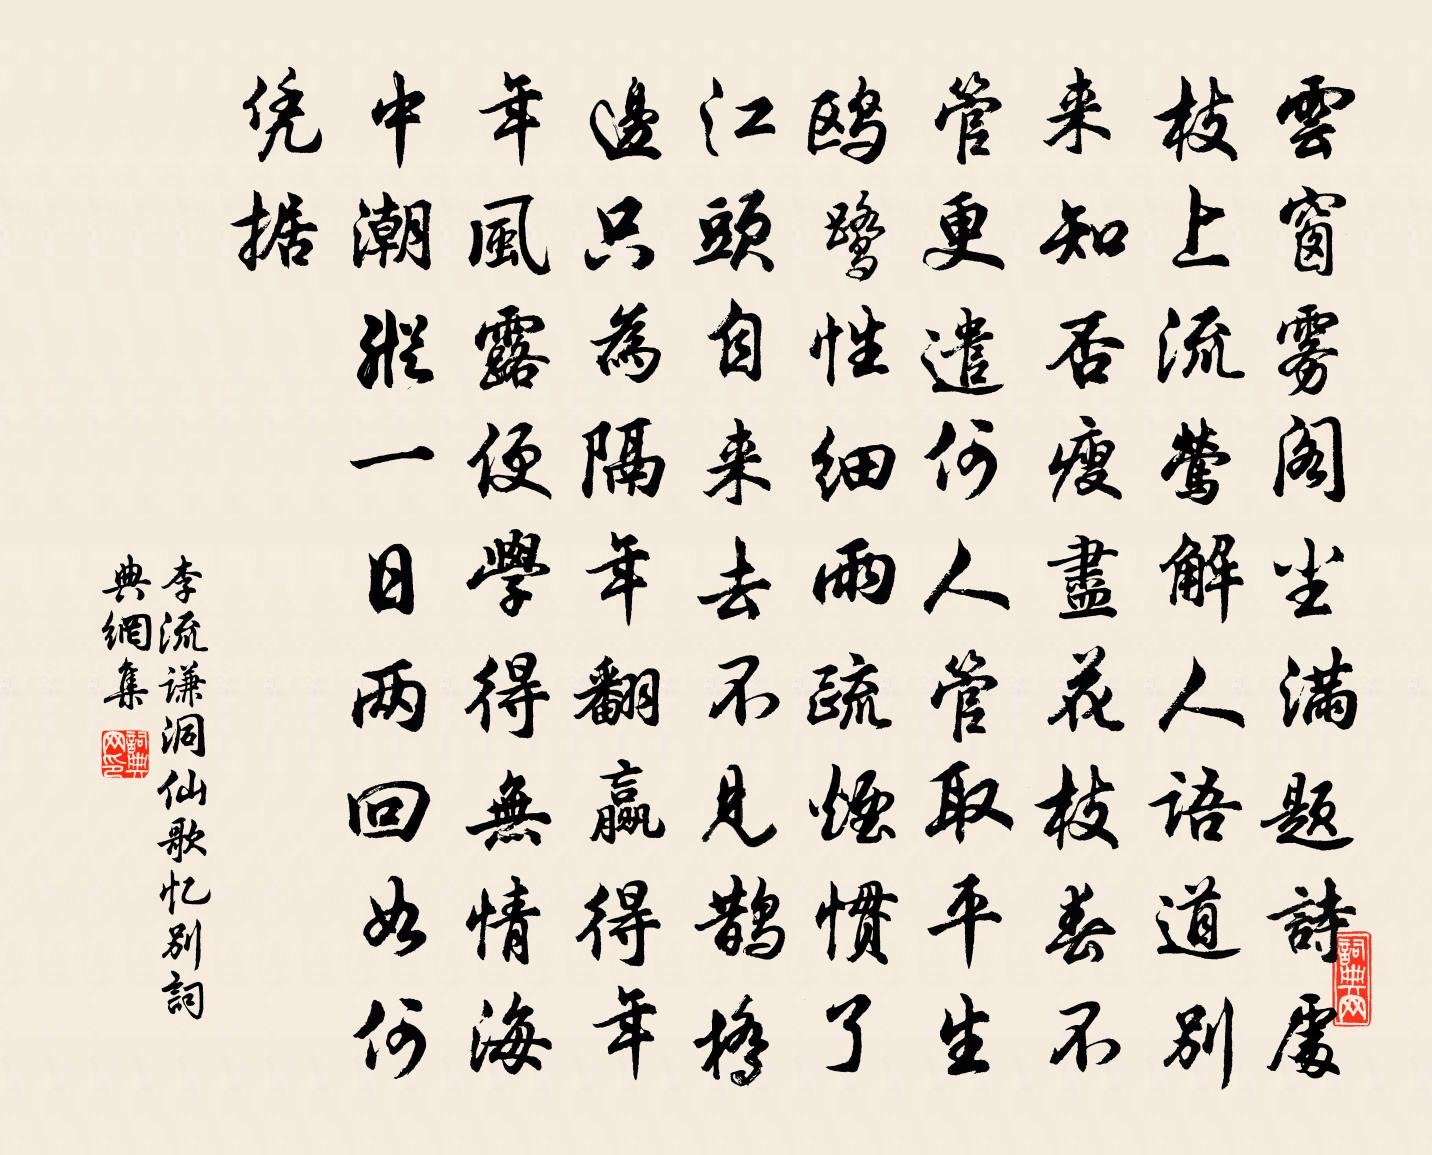 雲窗雾阁尘满题詩處
枝上流莺解人语道别
来知否瘦盡花枝春不
管更遣何人管取平生
鸥鹭性细雨疏煙惯了
江頭自来去不見鹊橋
邊只為隔年翻赢得年
年風露便學得無情海
中潮縱一日两回如何
凭据
李流谦洞仙歌忆别詞
典網集
詞典网
詞典网印